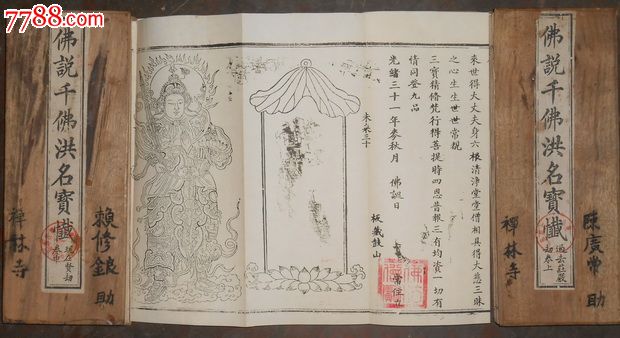 7788.com
佛說千佛洪名寶懺
現在賢劫
賴修鋃 助
禪林寺
來世得大丈夫身六根清淨堂堂僧相具得大悲三昧
之心生生世世常覩
三寶精脩梵行得菩提時四恩普報三有均資一切有
情同登九品
光緒三十一年麥秋月 佛誕日
板藏鼓山
常住
佛說千佛洪名寶懺
過去莊嚴
劫卷上
陳廣常 助
禪林寺